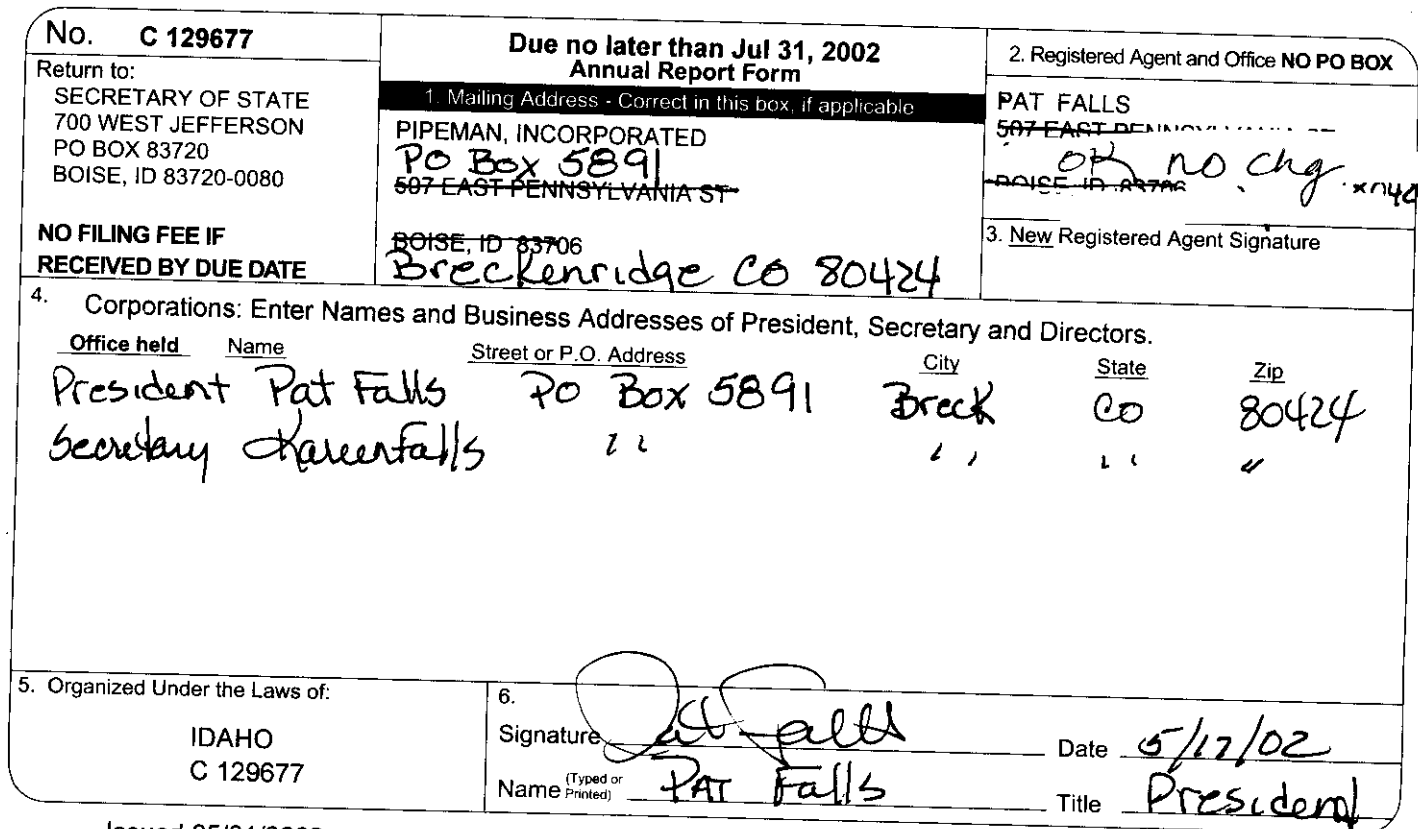 No. C 129677
Return to:
SECRETARY OF STATE
700 WEST JEFFERSON
PO BOX 83720
BOISE, ID 83720-0080
NO FILING FEE IF
RECEIVED BY DUE DATE
Due no later than Jul 31, 2002
Annual Report Form
1. Mailing Address - Correct in this box, if applicable
PIPEMAN, INCORPORATED
PO Box 5891
507 EAST PENNSYLVANIA ST
BOISE, ID 83706
Breckenridge CO 80424
2. Registered Agent and Office NO PO BOX
PAT FALLS
507 EAST
OK no chg
BOISE ID 83706
3. New Registered Agent Signature
4. Corporations: Enter Names and Business Addresses of President, Secretary and Directors.
Office held Name Street or P.O. Address City State Zip
President Pat Falls PO Box 5891 Breck CO 80424
Secretary Kareen Falls " " " "
5. Organized Under the Laws of:
IDAHO
C 129677
6.
Signature Pat Falls Date 5/17/02
Name (Typed or Printed) PAT Falls Title President